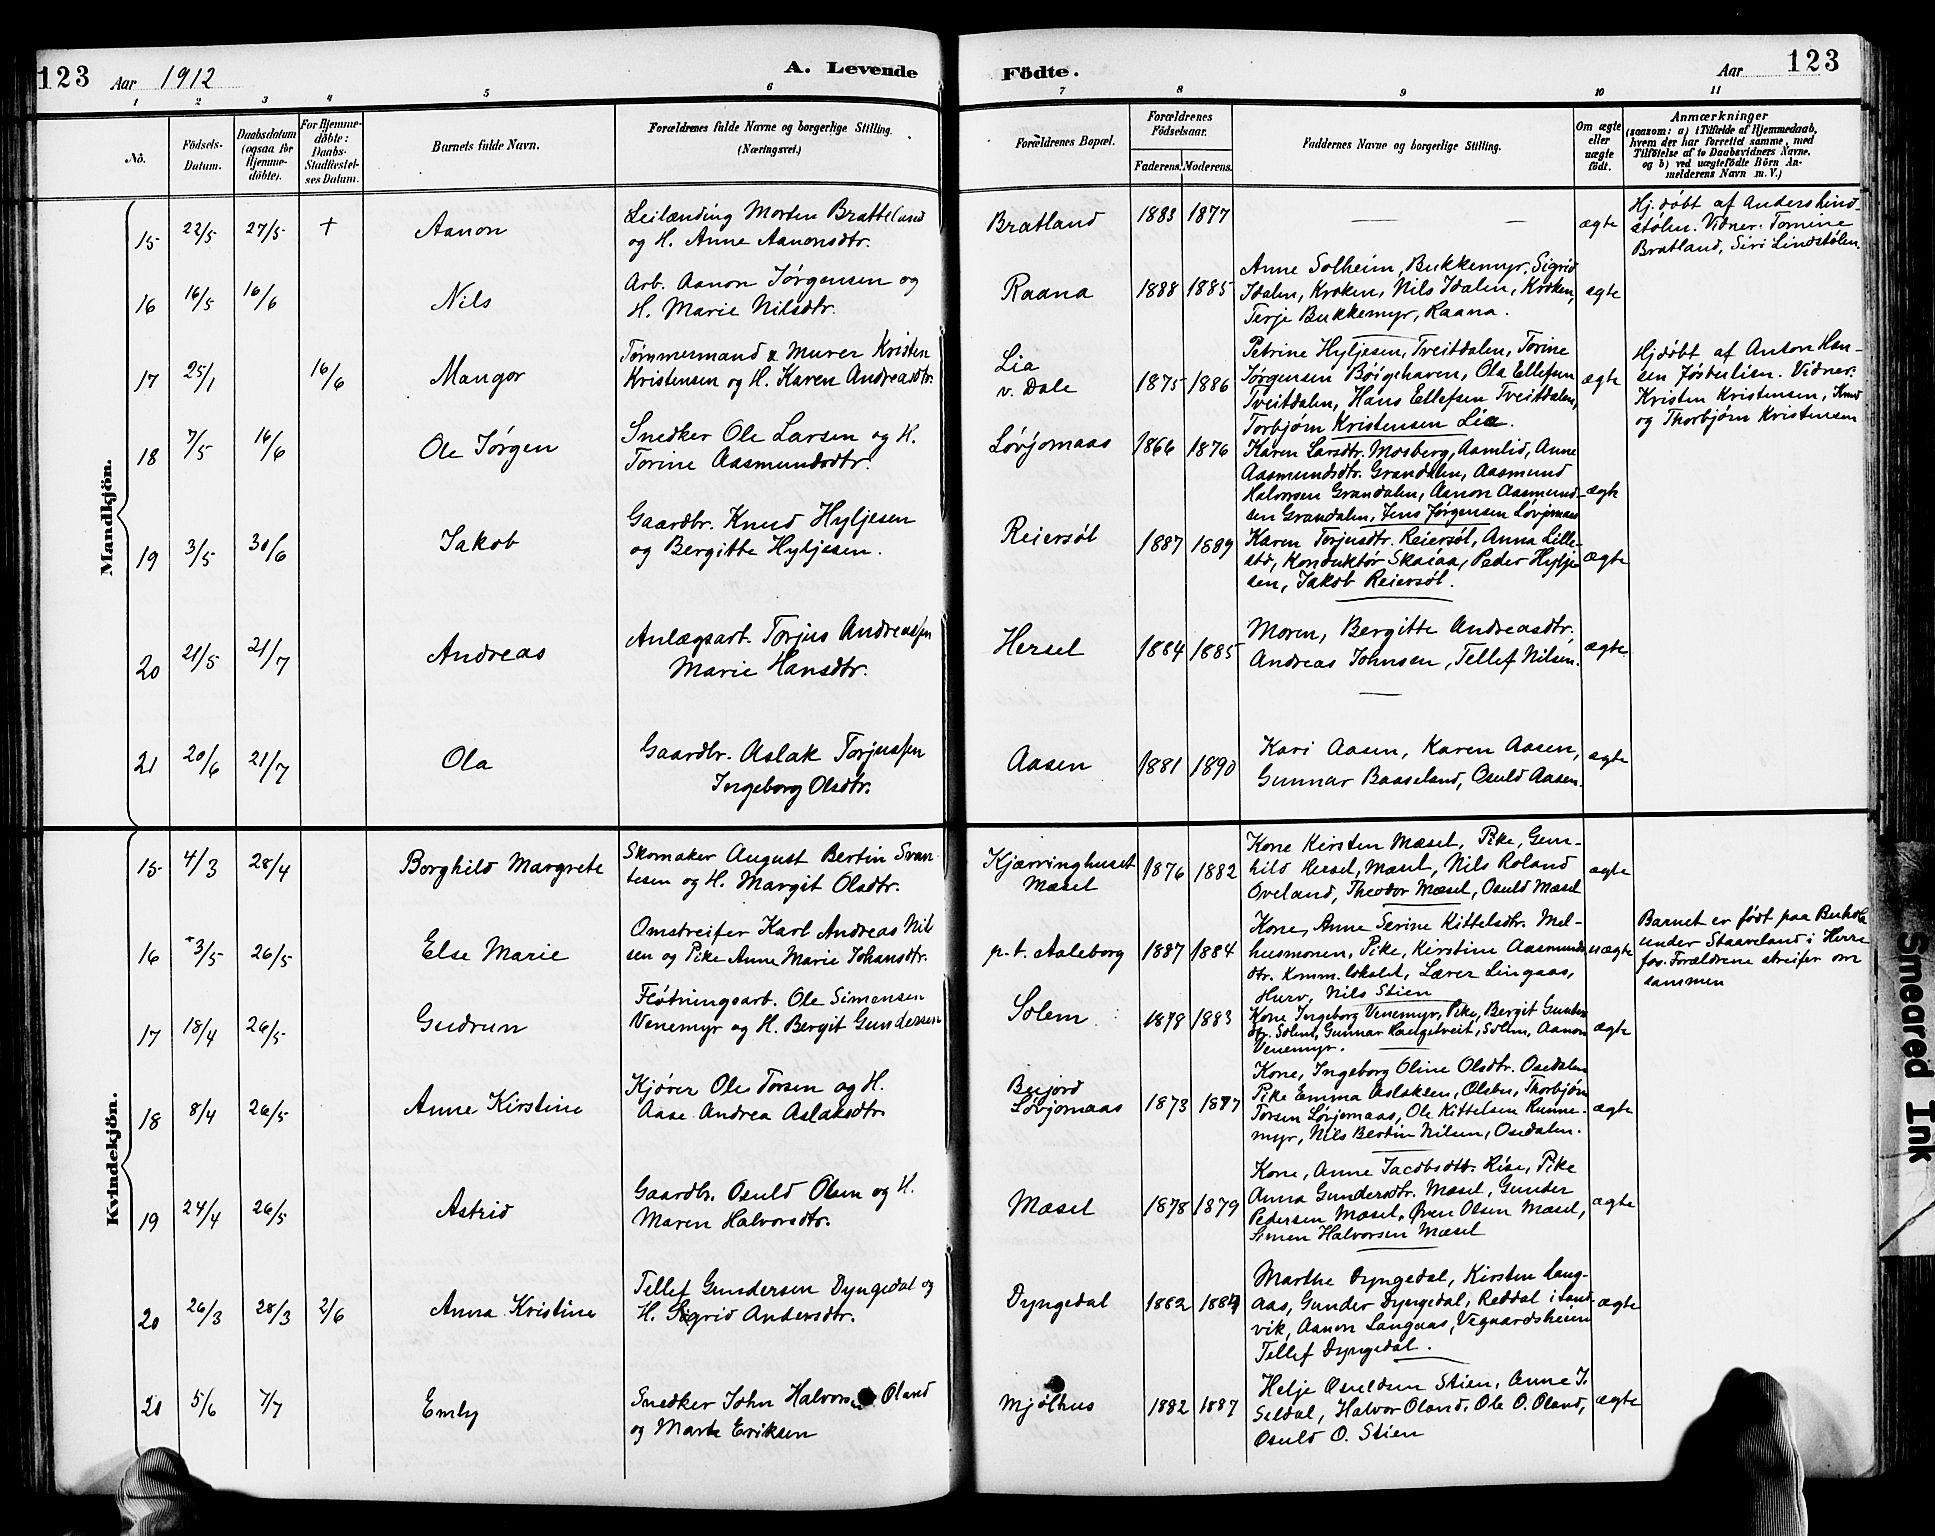 123 Aar 1912 A. Levende Födte. Aar 123
1 2 3 4 5 6 7 8 9 10 11
Nô. Födsels-Datum. Daabsdatum (ogsaa for Hjemme-döbte). For Hjemme-döbte: Daabs-Stadfæstel-ses Datum. Barnets fulde Navn. Forældrenes fulde Navne og borgerlige Stilling. (Næringsvei.) Forældrenes Bopæl. Forældrenes Födselsaar. Faderens. Moderens. Faddernes Navne og borgerlige Stilling. Om ægte eller uægte födt. Anmærkninger (saasom: a) i Tilfælde af Hjemmedaab, hvem der har forrettet samme, med Tilföielse af to Daabsvidners Navne. og b) ved uægtefödte Börn An-melderens Navn m. V.)
Mandkjön.
15 22/5 27/5 + Aanon
Leilænding Morten Brattelund
og H. Anne Aanonsdtr.
Bratland 1883 1877 — — ægte
Hj. døbt af Anders Lind-
stølen. Vidner: Tomine
Bratland, Siri Lindstølen.
16 16/5 16/6 Nils
Arb. Aanon Jørgensen og
H. Marie Nilsdtr.
Raana 1888 1885
Anne Solheim, Bukkemyr, Sigrid
Idalen, Kroken, Nils Idalen, Kroken,
Terje Bukkemyr, Raana.
ægte
17 25/1 16/6 Mangor
Tømmermand & Murer Kristen
Kristensen og H. Karen Andreasdtr.
Lia
v. Dale
1875 1886
Petrine Hyljesen, Treitdalen, Torine
Jørgensen Bøigehaven, Ola Ellefsen
Tveitdalen, Hans Ellefsen Tveitdalen,
Torbjørn Kristensen Lia.
ægte
Hjdøbt af Anton Han-
sen Fosterlien. Vidner:
Kristen Kristensen, Knud
og Thorbjørn Kristensen
18 7/5 16/6 Ole Jørgen
Snedker Ole Larsen og H.
Torine Aasmundsdtr.
Løvjomaas 1866 1876
Karen Larsdtr. Mosberg, Aamlid, Anne
Aasmundsdtr. Grandalen, Aasmund
Halvorsen Grandalen, Aanon Aasmund-
sen Grandalen, Jens Jørgensen Løvjomaas
ægte
19 3/5 30/6 Jakob
Gaardbr. Knud Hyljesen
og Bergitte Hyljesen.
Reiersøl 1887 1889
Karen Terjusdtr. Reiersøl, Anna Lille-
stø, Konduktør Skaiaa, Peder Hylje
sen, Jakob Reiersøl.
ægte
20 21/5 21/7 Andreas
Anlægsarb. Torjus Andreassen
Marie Hansdtr.
Hersel 1884 1885
Moren, Bergitte Andreasdtr.
Andreas Johnsen, Tellef Nilsen.
ægte
21 20/6 21/7 Ola
Gaardbr. Aslak Torjussen
Ingeborg Olsdtr.
Aasen 1881 1890
Kari Aasen, Karen Aasen,
Gunnar Baaseland, Osuld Aasen.
ægte
Kvindekjön.
15 4/3 28/4 Borghild Margrete
Skomaker August Bertin Svan-
tesen og H. Margit Olsdtr.
Kjærringhuset
Mæsel
1876 1882
Kone Kirsten Mæsel, Pike, Gun-
hild Hersel, Mæsel, Nils Roland
Oveland, Theodor Mæsel, Osuld Mæsel
ægte
16 3/5 26/5 Else Marie
Omstreifer Karl Andreas Nil
sen og Pike Anne Marie Johansdtr.
p. t. Aaleborg 1887 1884
Kone, Anne Serine Kittelsdtr. Mel-
husmonen, Pike, Kirstine Aasmunds
dtr. Komm.lokalet, Lærer Lingaas,
Hurv, Nils Stien
uægte
Barnet er født paa
under Staaveland i Herre
fos. Forældrene streifer om
sammen
17 18/4 26/5 Gudrun
Fløtningsarb. Ole Simonsen
Venemyr og H. Bergit Gundersen
Solem 1878 1883
Kone Ingeborg Venemyr, Pike, Bergit Gunder
dtr. Solem, Gunnar Haugetveit, Solem, Aanon
Venemyr.
ægte
18 8/4 26/5 Anne Kirstine
Kjører Ole Torsen og H.
Aase Andrea Aslaksdtr.
Bujord
Løvjomaas
1873 1877
Kone, Ingeborg Oline Olsdtr. Osedalen
Pike Emma Aslaksen, Olsbu, Thorbjørn
Torsen Løvjomaas, Ole Kittelsen Runne-
myr, Nils Bertin Nilsen, Osedalen.
ægte
19 24/4 26/5 Astrid
Gaardbr. Osuld Olsen og H.
Maren Halvorsdtr.
Mæsel 1878 1879
Kone, Anne Jacobsdtr. Rise, Pike
Anna Gundersdtr. Mæsel, Gunder
Pedersen Mæsel, Øven Olsen Mæsel,
Simen Halvorsen Mæsel
ægte
20 26/3 28/3 2/6 Anna Kristine
Tellef Gundersen Dyngedal og
H. Sigrid Andersdtr.
Dyngedal 1882 1884
Marthe Dyngedal, Kirsten Lang-
aas, Gunder Dyngedal, Reddal i Land
vik, Aanon Langaas, Vegaardsheien
Tellef Dyngedal.
ægte
21 5/6 7/7 Emly
Snedker John Halvorsen Oland
og Marte Eriksen
Mjølhus 1882 1887
Helje Osuldsen Stien, Anne J.
Seldal, Halvor Oland, Ole O. Oland,
Osuld O. Stien
ægte
Smeared Ink